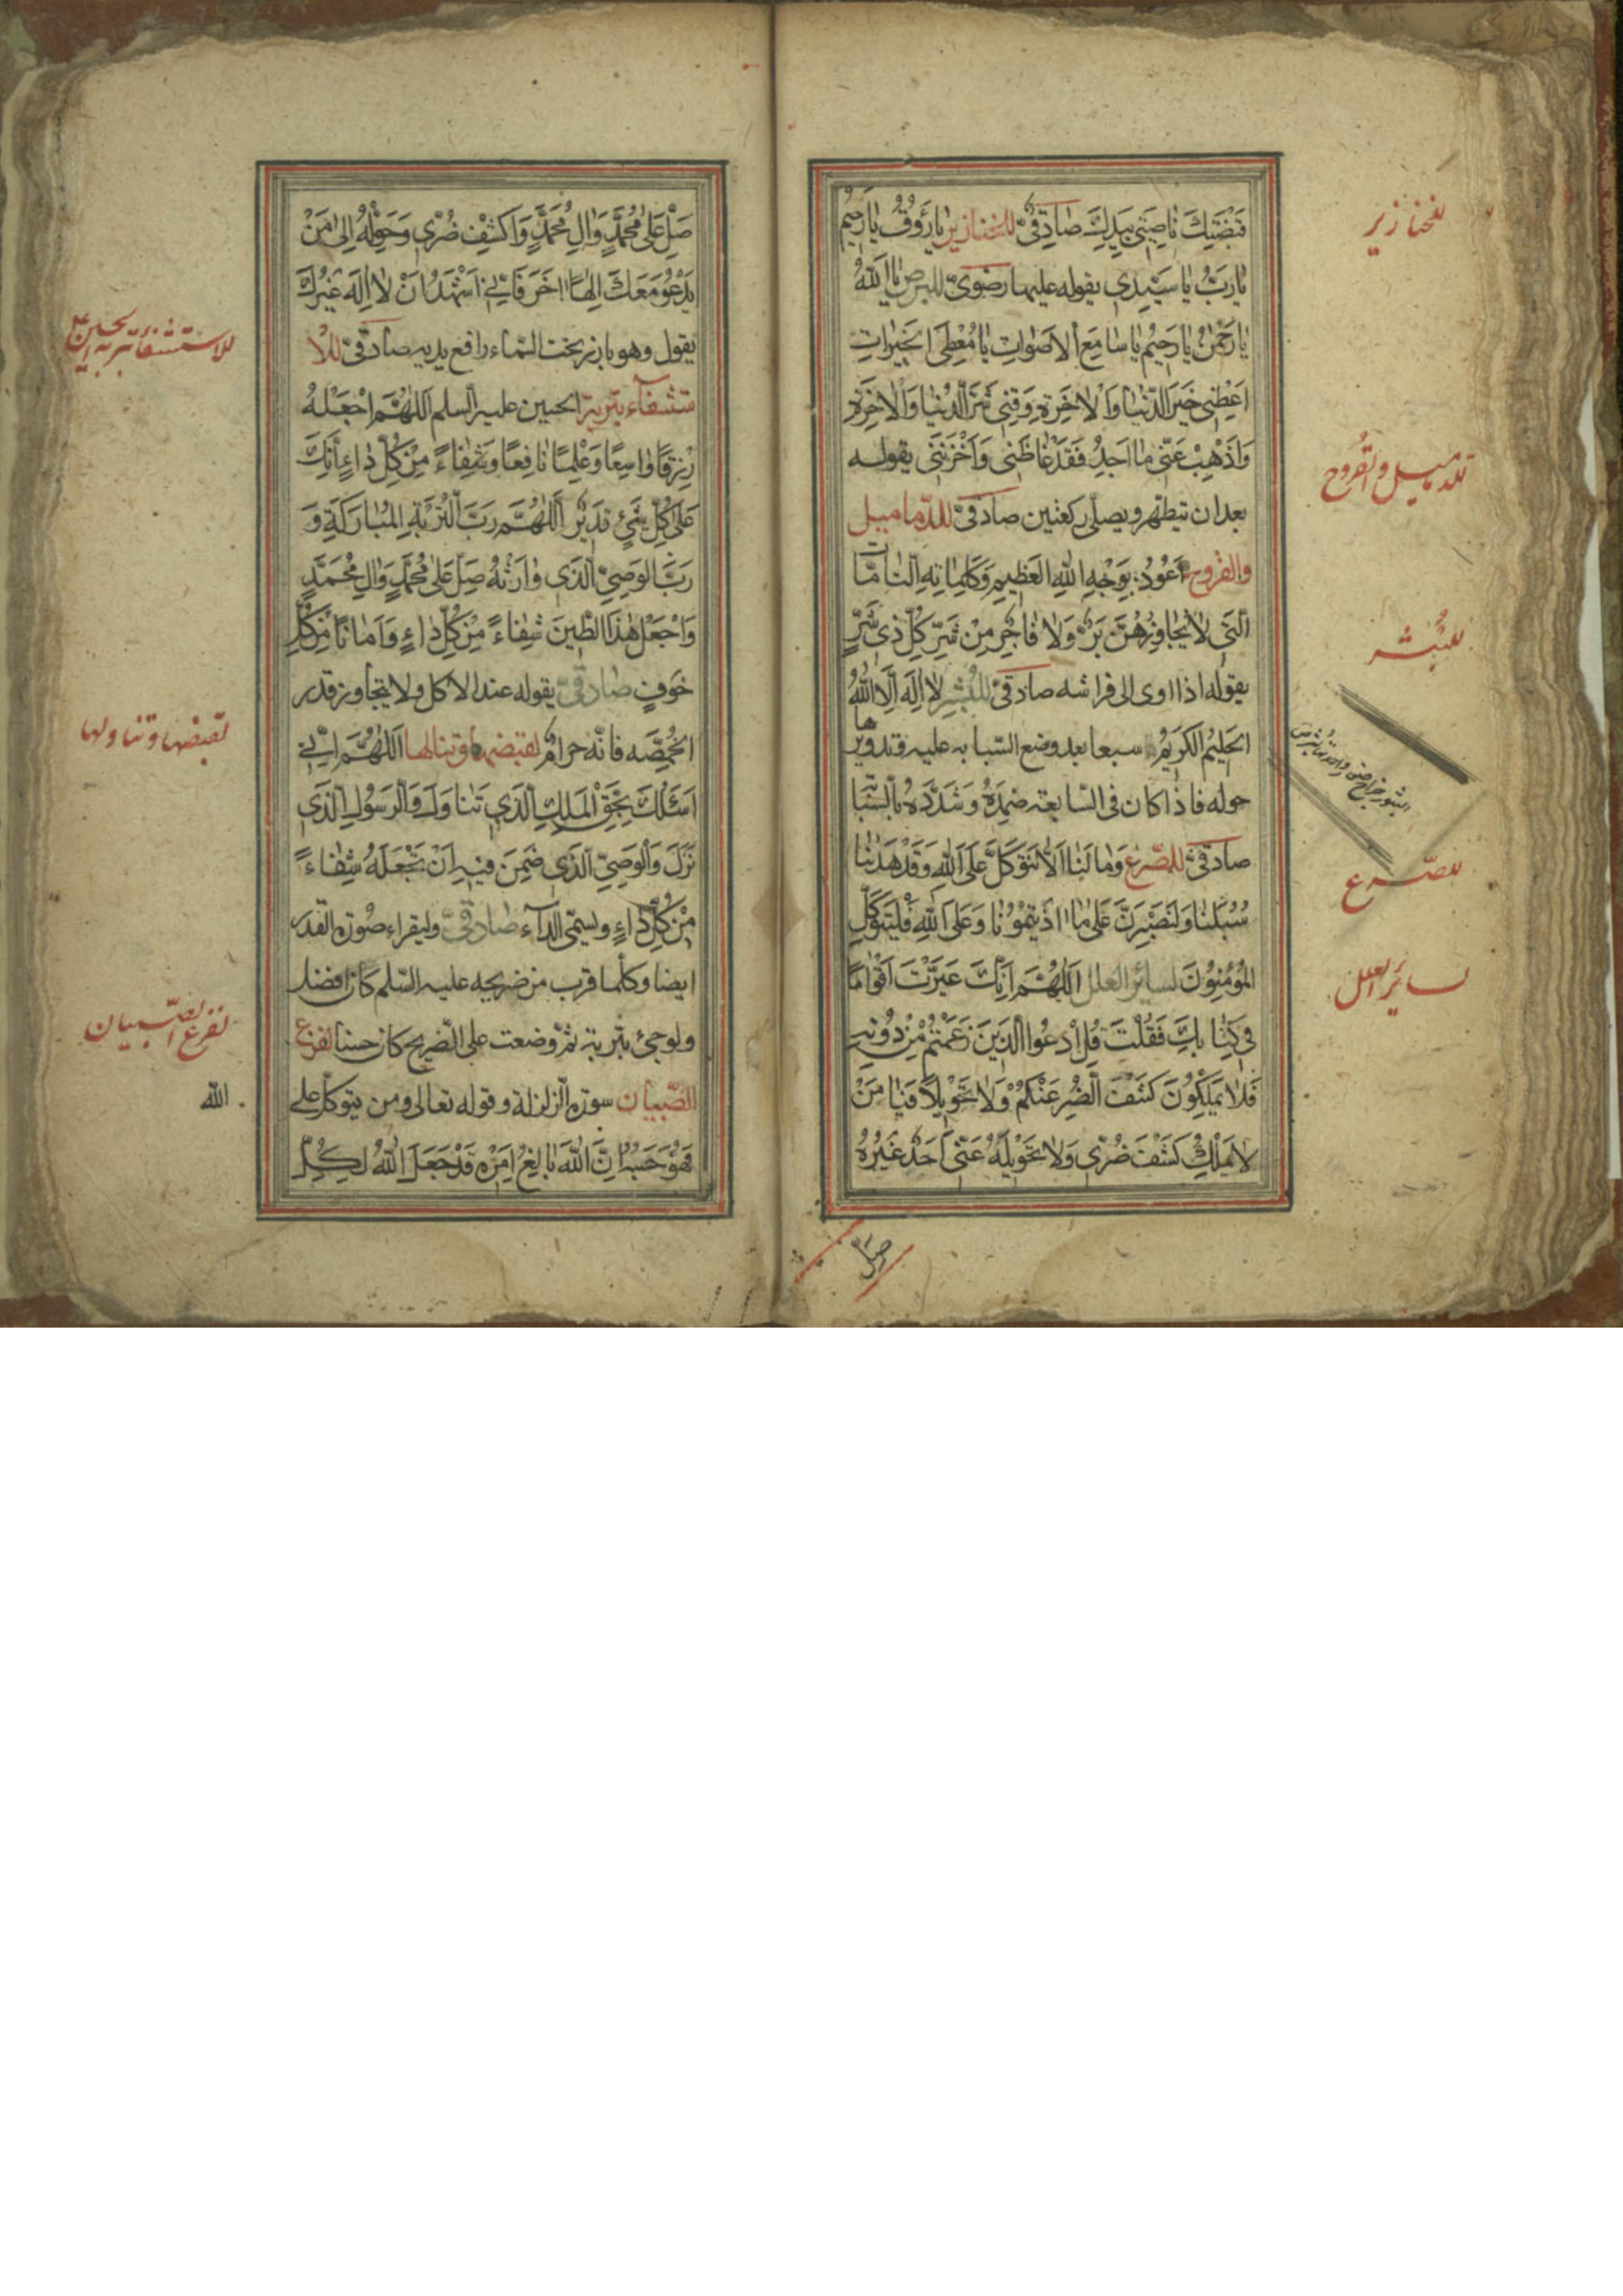 قَبْضَتِكَ نٰاصِيَتي بِيَدِكَ صٰادِقيٌّ للخنازير يٰا رَؤُوفُ يٰا رَحيمُ
يٰا رَبِّ يٰا سَيِّدي يقوله عليها رضويّ للبرص يٰا اَللّٰهُ
يٰا رَحْمٰنُ يٰا رَحيمُ يٰا سٰامِعَ الْاَصْوٰاتِ يٰا مُعْطِيَ الْخَيْرٰاتِ
اَعْطِني خَيْرَ الدُّنْيٰا وَالْاٰخِرَةِ وَقِني شَرَّ الدُّنْيٰا وَالْاٰخِرَةِ
وَاَذْهِبْ عَنّي مٰا اَجِدُ فَقَدْ غٰاظَني وَاَحْزَنَني يقوله
بعد ان يتطهر ويصلي ركعتين صادقيّ للدّماميل
والقروح اَعُوذُ بِوَجْهِ اللّٰهِ الْعَظيمِ وَكَلِمٰاتِهِ التّٰامّٰات
الَّتي لٰا يُجٰاوِزُهُنَّ بَرٌّ وَلٰا فٰاجِرٌ مِنْ شَرِّ كُلِّ ذي شَرٍّ
يقوله اذا اوى الى فراشه صادقيّ للبثر لٰا اِلٰهَ اِلَّا اللّٰهُ
الْحَليمُ الْكَريمُ سبعا بعد وضع السّبابه عليه وتدويرها
حوله فاذا كان في السّابعة ضمده وشدّده بالسّبّا
صادقيّ للصّرع وَمٰا لَنٰا اَلّٰا نَتَوَكَّلَ عَلَى اللّٰهِ وَقَدْ هَدٰينٰا
سُبُلَنٰا وَلَنَصْبِرَنَّ عَلىٰ مٰا اٰذَيْتُمُونٰا وَعَلَى اللّٰهِ فَلْيَتَوَكَّلِ
الْمُؤْمِنُونَ لسائر العلل اَللّٰهُمَّ اِنَّكَ عَيَّرْتَ اَقْوٰامًا
في كِتٰابِكَ فَقُلْتَ قُلِ ادْعُوا الَّذينَ زَعَمْتُمْ مِنْ دُونِهِ
فَلٰا يَمْلِكُونَ كَشْفَ الضُّرِّ عَنْكُمْ وَلٰا تَحْويلًا فَيٰا مَنْ
لٰا يَمْلِكُ كَشْفَ ضُرّي وَلٰا تَحْويلَهُ عَنّي اَحَدٌ غَيْرُهُ
صل
للخنازير
للدماميل والقروح
للبثر
للصّرع
لسائر العلل
صَلِّ عَلىٰ مُحَمَّدٍ وَاٰلِ مُحَمَّدٍ وَاكْشِفْ ضُرّي وَحَوِّلْهُ اِلىٰ مَنْ
يَدْعُو مَعَكَ اِلٰهًا اٰخَرَ فَاِنّي اَشْهَدُ اَنْ لٰا اِلٰهَ غَيْرُكَ
يقول وهو بارز تحت السّماء رافع يديه صادقيّ للا
ستشفاء بتربة الحسين عليه السلم اَللّٰهُمَّ اجْعَلْهُ
رِزْقًا وٰاسِعًا وَعِلْمًا نٰافِعًا وَشِفٰاءً مِنْ كُلِّ دٰاءٍ اِنَّكَ
عَلىٰ كُلِّ شَيْءٍ قَديرٌ اَللّٰهُمَّ رَبَّ التُّرْبَةِ الْمُبٰارَكَةِ وَ
رَبَّ الْوَصِيِّ الَّذي وٰارَتْهُ صَلِّ عَلىٰ مُحَمَّدٍ وَاٰلِ مُحَمَّدٍ
وَاجْعَلْ هٰذَا الطّينَ شِفٰاءً مِنْ كُلِّ دٰاءٍ وَاَمٰانًا مِنْ كُلِّ
خَوْفٍ صادقيّ يقوله عند الاكل ولا يتجاوز قدر
الحمّصه فانّه حرام لقبضها وتناولها اَللّٰهُمَّ اِنّي
اَسْئَلُكَ بِحَقِّ الْمَلَكِ الَّذي تَنٰاوَلَ وَالرَّسُولِ الَّذي
نَزَلَ وَالْوَصِيِّ الَّذي ضَمِنَ فيهِ اَنْ تَجْعَلَهُ شِفٰاءً
مِنْ كُلِّ دٰاءٍ ويسمّى الدآء صادقيّ وليقراء صورة القدر
ايضا وكلّما قرب من ضريحه عليه السّلم كان افضل
ولو جئ بتربة ثمّ وضعت على الضّريح كان حسنا لفزع
الصّبيان سورة الزلزلة وقوله تعالى ومن يتوكل على
فَهُوَ حَسْبُهُ اِنَّ اللّٰهَ بٰالِغُ اَمْرِهِ قَدْ جَعَلَ اللّٰهُ لِكُلِّ
للاستشفاء بتربة الحسين ع
لقبضها وتناولها
لفزع الصّبيان
الله